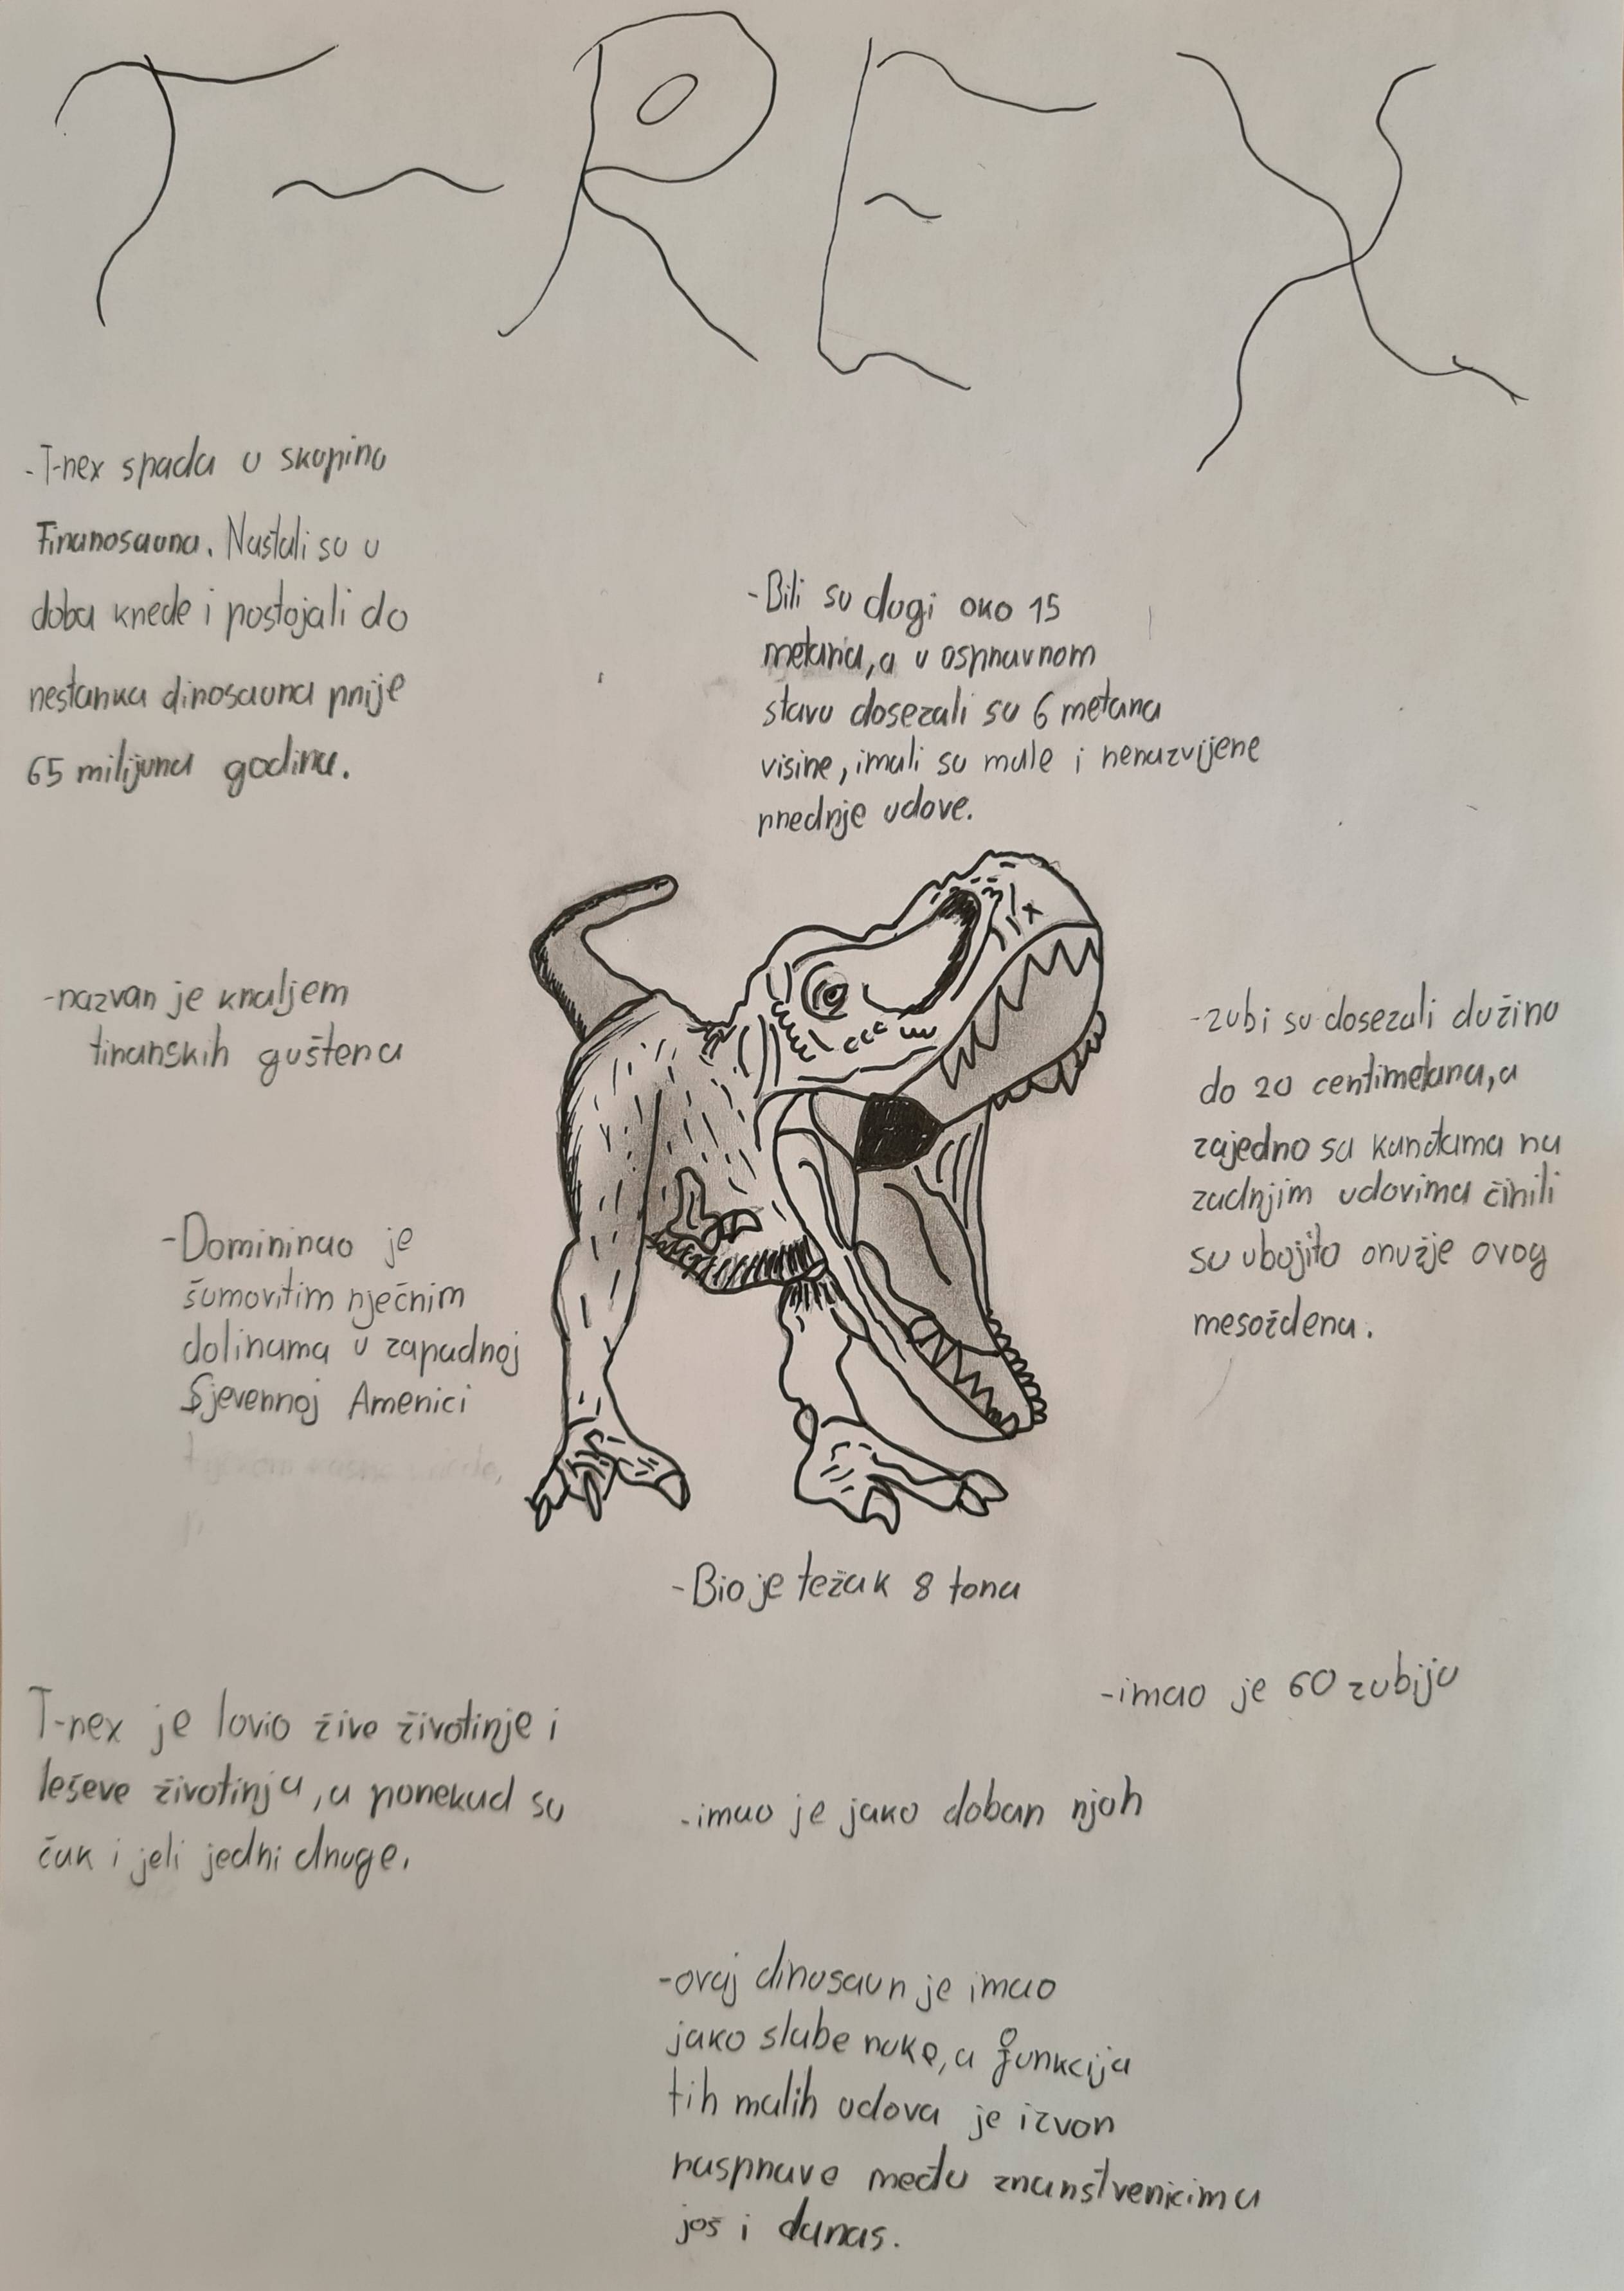 T-REX
-T-rex spada u skupinu
Tiranosaura. Nastali su u
doba krede i postojali do
nestanka dinosaura prije
65 milijuna godina.
-Bili su dugi oko 15
metara, a u uspravnom
stavu dosezali su 6 metara
visine, imali su male i nerazvijene
prednje udove.
-nazvan je kraljem
tiranskih guštera
-zubi su dosezali dužinu
do 20 centimetara, a
zajedno sa kanđama na
zadnjim udovima činili
su ubojito oružje ovog
mesoždera.
-Dominirao je
šumovitim rječnim
dolinama u zapadnoj
Sjevernoj Americi
-Bio je težak 8 tona
-imao je 60 zubiju
T-rex je lovio žive životinje i
leševe životinja, a ponekad su
čak i jeli jedni druge.
-imao je jako dobar njuh
-ovaj dinosaur je imao
jako slabe ruke, a funkcija
tih malih udova je izvor
rasprave među znanstvenicima
još i danas.